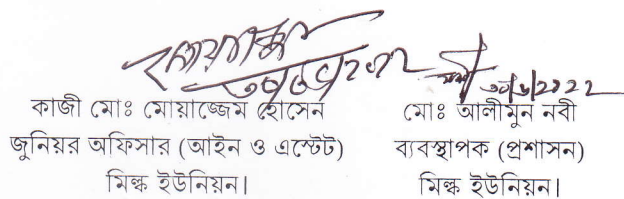 কাজী মোঃ মোয়াজ্জেম হোসেন
জুনিয়র অফিসার (আইন ও এস্টেট)
মিল্ক ইউনিয়ন।
মোঃ আলীমুন নবী
ব্যবস্থাপক (প্রশাসন)
মিল্ক ইউনিয়ন।